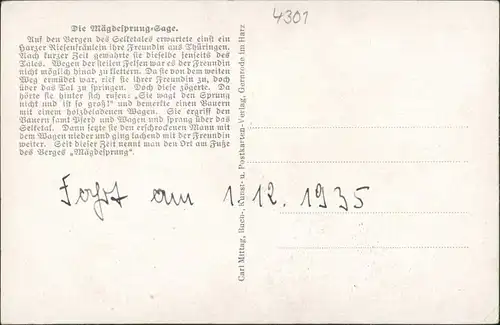 4301
Die Mägdesprung-Sage.
Auf den Bergen des Selketales erwartete einst ein
Harzer Riesenfräulein ihre Freundin aus Thüringen.
Nach kurzer Zeit gewahrte sie dieselbe jenseits des
Tales. Wegen der steilen Felsen war es der Freundin
nicht möglich hinab zu klettern. Da sie von dem weiten
Weg ermüdet war, rief sie ihrer Freundin zu, doch
über das Tal zu springen. Doch diese zögerte. Da
hörte sie hinter sich rufen: „Sie wagt den Sprung
nicht und ist so groß!" und bemerkte einen Bauern
mit einem holzbeladenen Wagen. Sie ergriff den
Bauern samt Pferd und Wagen und sprang über das
Selketal. Dann setzte sie den erschrockenen Mann mit
dem Wagen nieder und ging lachend mit der Freundin
weiter. Seit dieser Zeit nennt man den Ort am Fuße
des Berges „Mägdesprung".
am 1.12.1935
Carl Mittag, Buch-, Kunst- u. Postkarten-Verlag, Gernrode im Harz